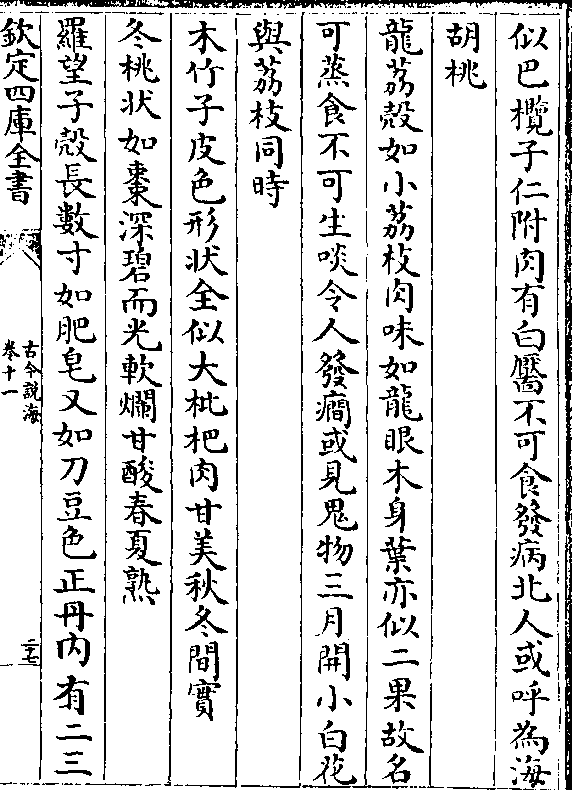 似巴欖子仁附肉有白靨不可食發病北人或呼為海
胡桃
龍荔殼如小荔枝肉味如龍眼木身葉亦似二果故名
可蒸食不可生啖令人發癇或見鬼物三月開小白花
與荔枝同時
木竹子皮色形狀全似大枇杷肉甘美秋冬間實
冬桃狀如棗深碧而光軟爛甘酸春夏熟
羅望子殼長數寸如肥皂又如刀豆色正丹內有二三
欽定四庫全書
古今說海
卷十一
二十七